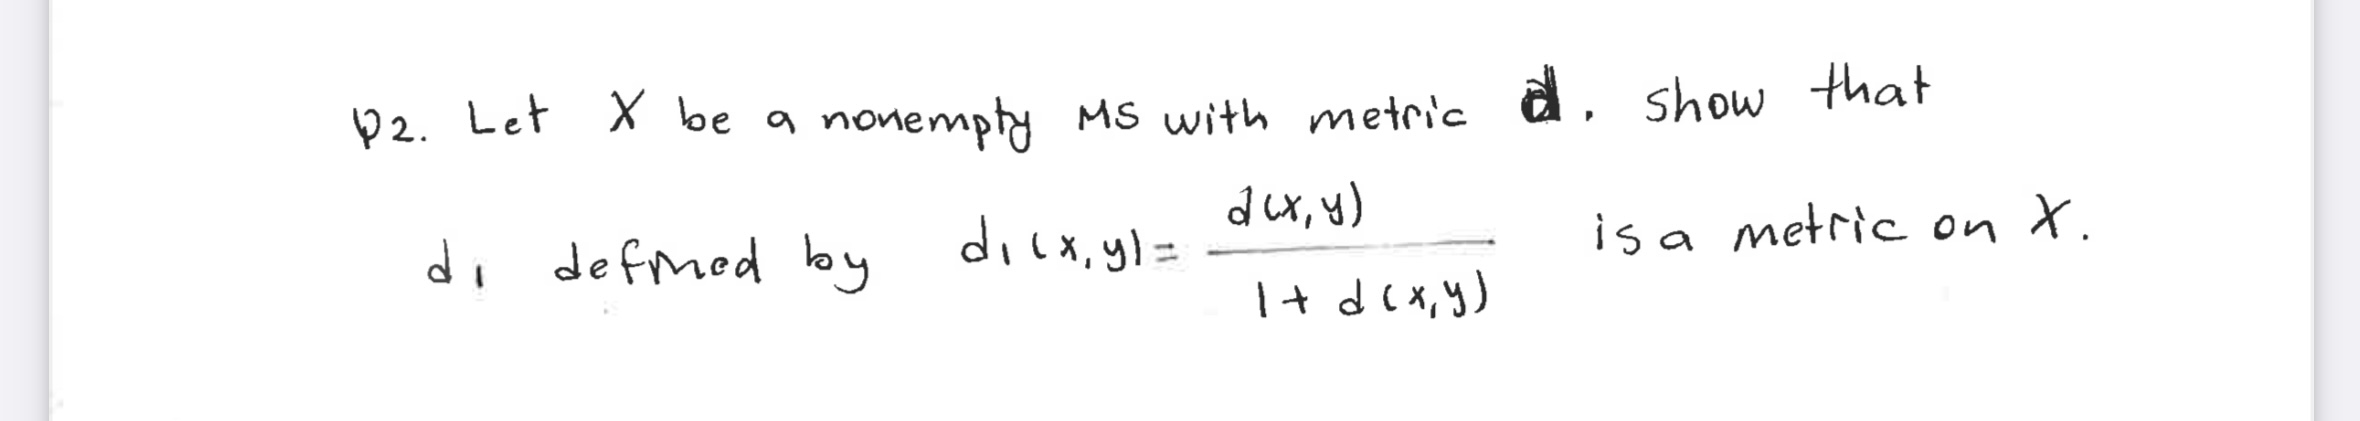 Q2. Let X be a nonempty MS with metric d. show that
d₁ defined by d₁(x,y) = d(x,y) / 1 + d(x,y) is a metric on X.